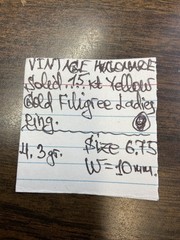 VINTAGE HANDMADE
Solid 15 kt Yellow
Gold Filigree Ladies
Ring.
4.3 gr. Size 6.75
W = 10 mm.